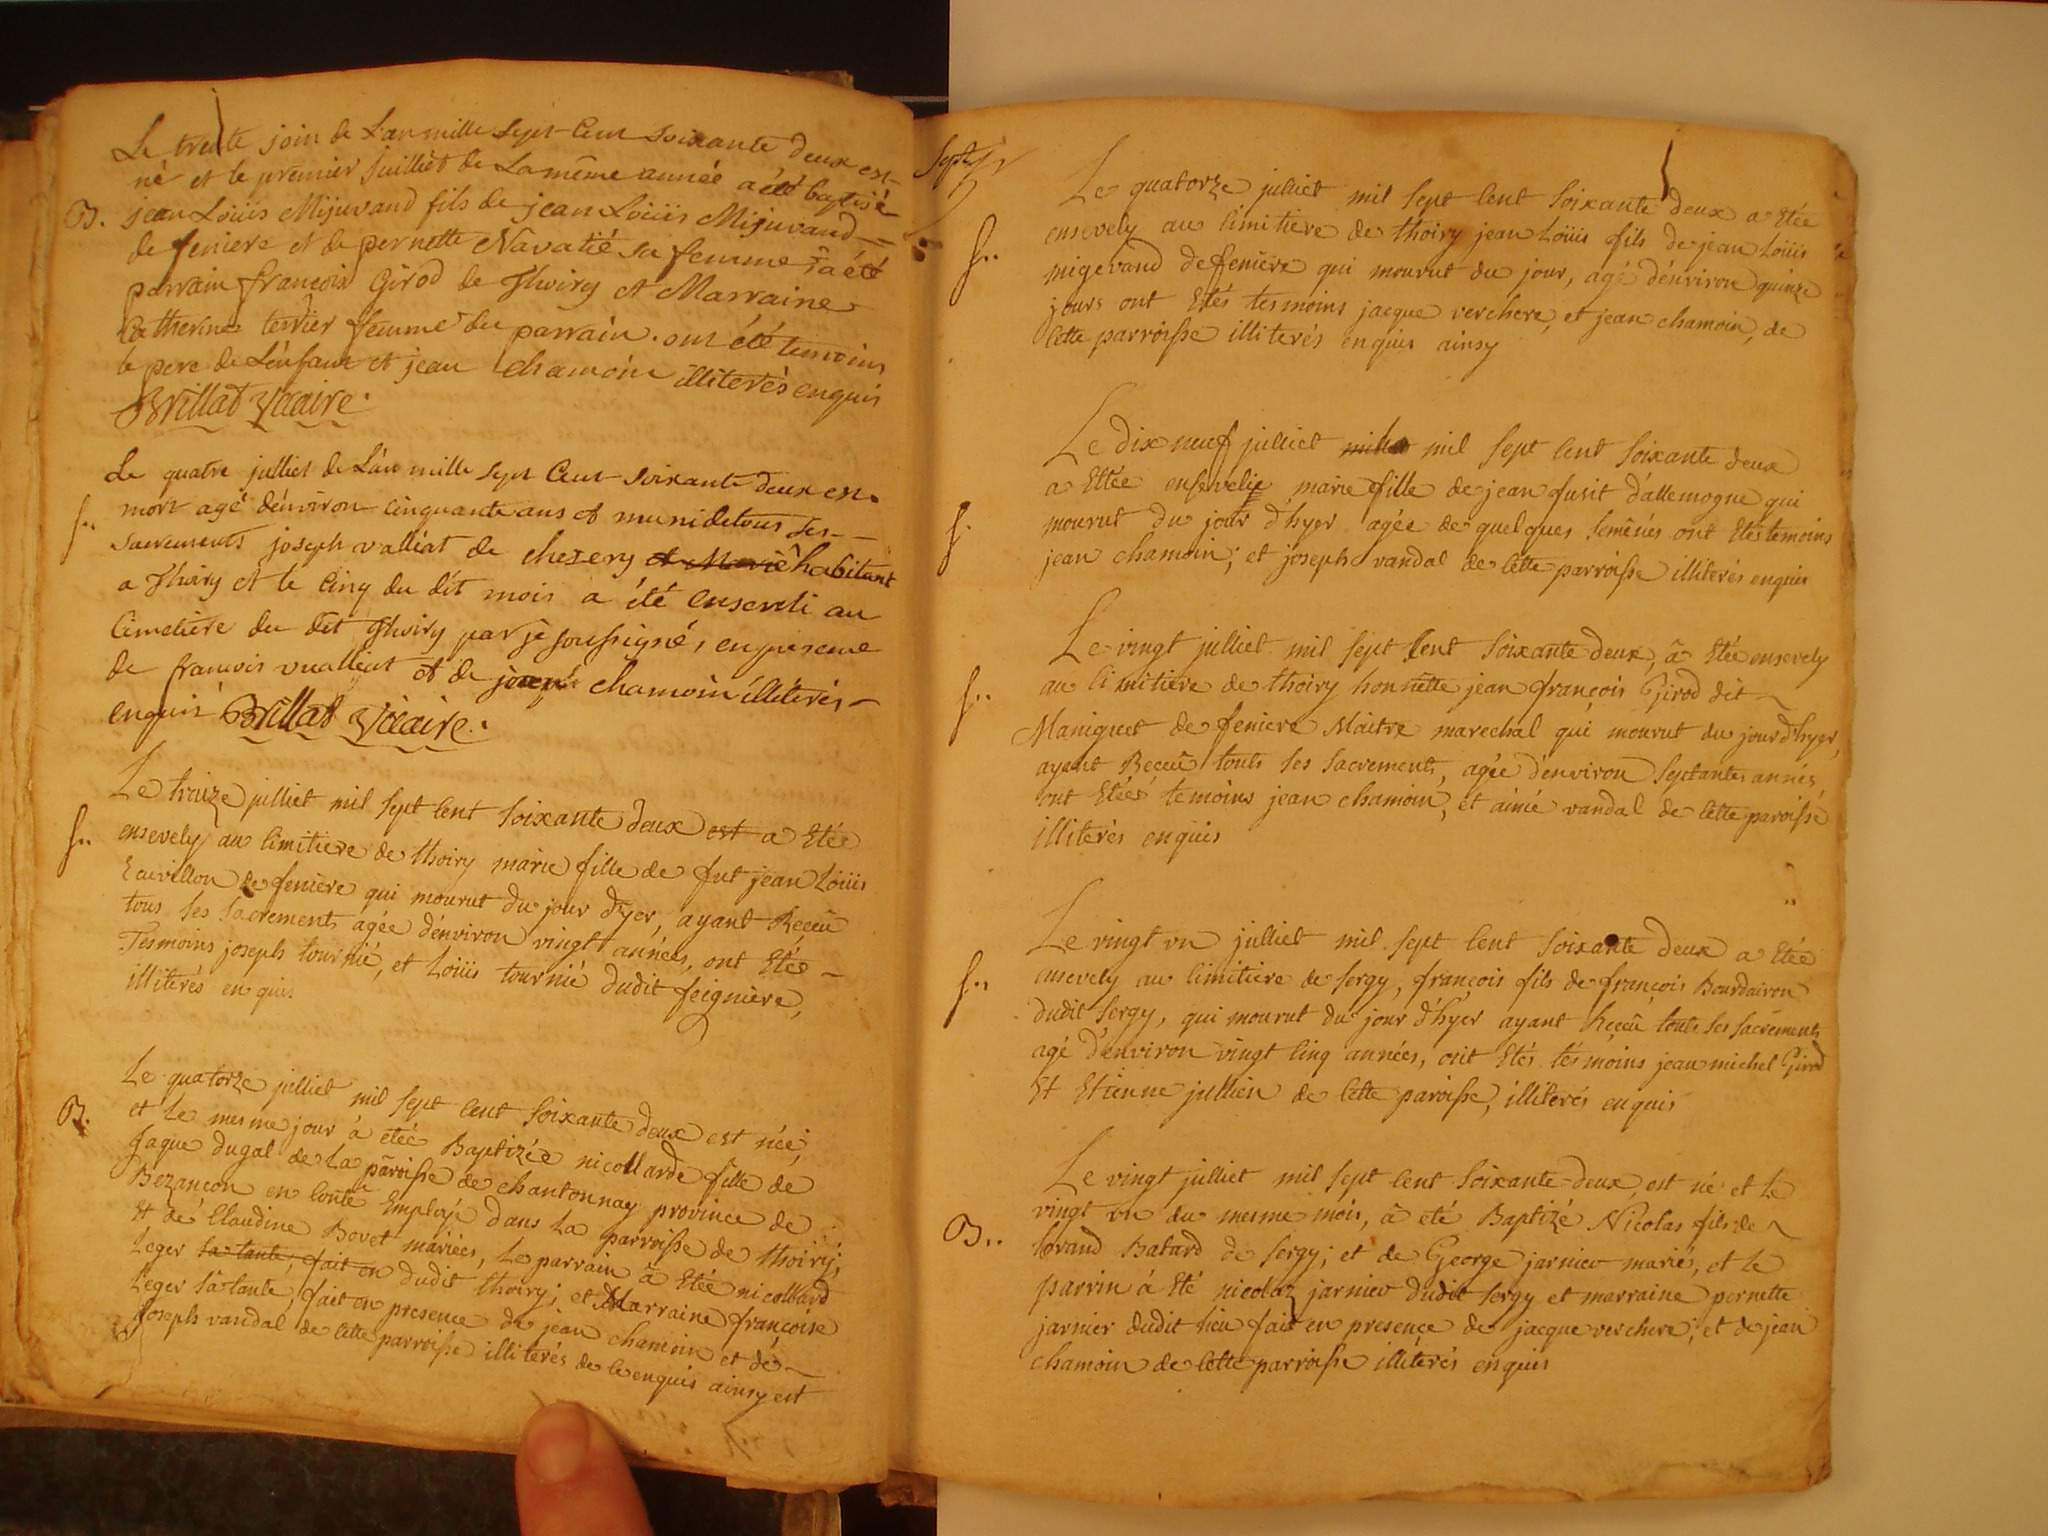 Le trente join de L'an mille sept Cent soixante deux est
né et le premier Juilliet de La même année a été baptisé
B. jean Loüis Mijuvand fils de jean Loüis Mijuvand
de feniere et de pernette Navatié sa femme a été
parrain françois Girod de Thoiry et Marraine
Catherine terrier femme du parrain. ont été temoins
le pere de L'enfant et jean chamoin illiterés enquis
Brillat Vicaire.
Le quatre julliet de L'an mille sept Cent soixante deux est
mort agé d'environ cinquante ans et muni de tous ses
S.. sacrements joseph valliat de chezery et Marie habitant
a Thoiry et le Cinq du dit mois a été enseveli au
Cimetiere du dit Thoiry par je soussigné, en presence
de francois vualliat et de joseph chamoin illiterés
enquis Brillat Vicaire.
Le traize julliet mil sept Cent Soixante deux est a Etée
S.. ensevely au Cimitiere de thoiry marie fille de fut jean Loüis
Ecuvillon de feniere qui mourut du jour d'yer, ayant Reçeu
tous ses sacrements agée d'environ vingt années, ont Etés
Tesmoins joseph tournié, et Loüis tournié dudit feigniere,
illiterés enquis
Le quatorze julliet mil sept Cent Soixante deux est née,
B. et le mesme jour à etéé Baptizée nicollarde fille de
Jaque dugal de La paroisse de chantonnay province de
Bezançon en Conté Employé dans La parroisse de thoiry;
Et de Claudine Bovet mariées, Le parrain à Etée nicollard
Leger sa tante, fait en dudit thoiry; et Marraine françoise
Leger sa tante, fait en presence de jean chamoin et de
Joseph vandal de cette parroisse illiterés de ce enquis ainsy est
Sept
Le quatorze julliet mil sept Cent Soixante deux a Etée
S.. ensevely au Cimitiere de thoiry jean Loüis fils de jean Loüis
migevand de feniere qui mourut du jour, agé d'environ quinze
jours ont Etés tesmoins jacque verchere, et jean chamoin, de
Cette parroisse illiterés enquis ainsy
Le dix neuf julliet mil sept Cent Soixante deux
a Ettée ensevelie marie fille de jean fusit d'allemogne qui
S. mourut du jour d'hyer agée de quelques semênes ont Etes temoins
jean chamoin; et joseph vandal de Cette parroisse illiterés enquis
Le vingt julliet mil sept Cent Soixante deux, à Etée ensevely
S.. au Cimitiere de thoiry honnette jean françois Girod dit
Maniquet de feniere Maitre marechal qui mourut du jour d'hyer,
ayant Reçeu touts ses sacrements, agée d'environ Septantes années
ont Etées temoins jean chamoin, et aimé vandal de Cette paroisse
illiterés enquis
Le vingt un julliet mil sept Cent Soixante deux a Etée
S.. ensevely au Cimitiere de sergy, françois fils de françois Bourdairon
dudit sergy, qui mourut du jour d'hyer ayant Reçeu touts ses sacrements
agé d'environ vingt Cinq années, ont Etés tésmoins jean michel Girod
Et Etienne jullien de Cette paroisse, illiterés enquis
Le vingt julliet mil sept Cent Soixante-deux, est né et Le
vingt un du mesme mois, à eté Baptizé Nicolas fils de
B.. Corand Batard de sergy; et de George jarnier marié, et Le
parrin à Eté nicolaz jarnier dudit sergy et marraine pernette
jarnier dudit lieu fait en presence de jacque verchere; et de jean
chamoin de Cette parroisse illiterés enquis